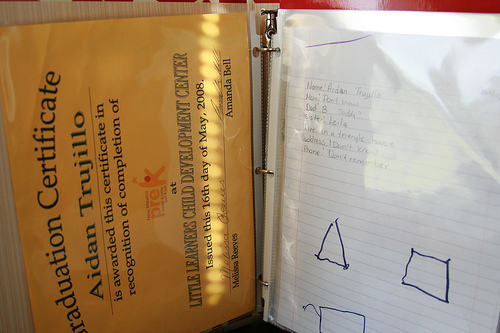 raduation Certificate
Aidan Trujillo
is awarded this certificate in
recognition of completion of
prek
at
LITTLE LEARNERS CHILD DEVELOPMENT CENTER
Issued this 16th day of May, 2008.
Melissa Reeves
Amanda Bell
Name: Aidan Trujillo
Mom: Dont know
Dad B.
Leila
in a triangle house
address: I Don't
Phone: Don't remember